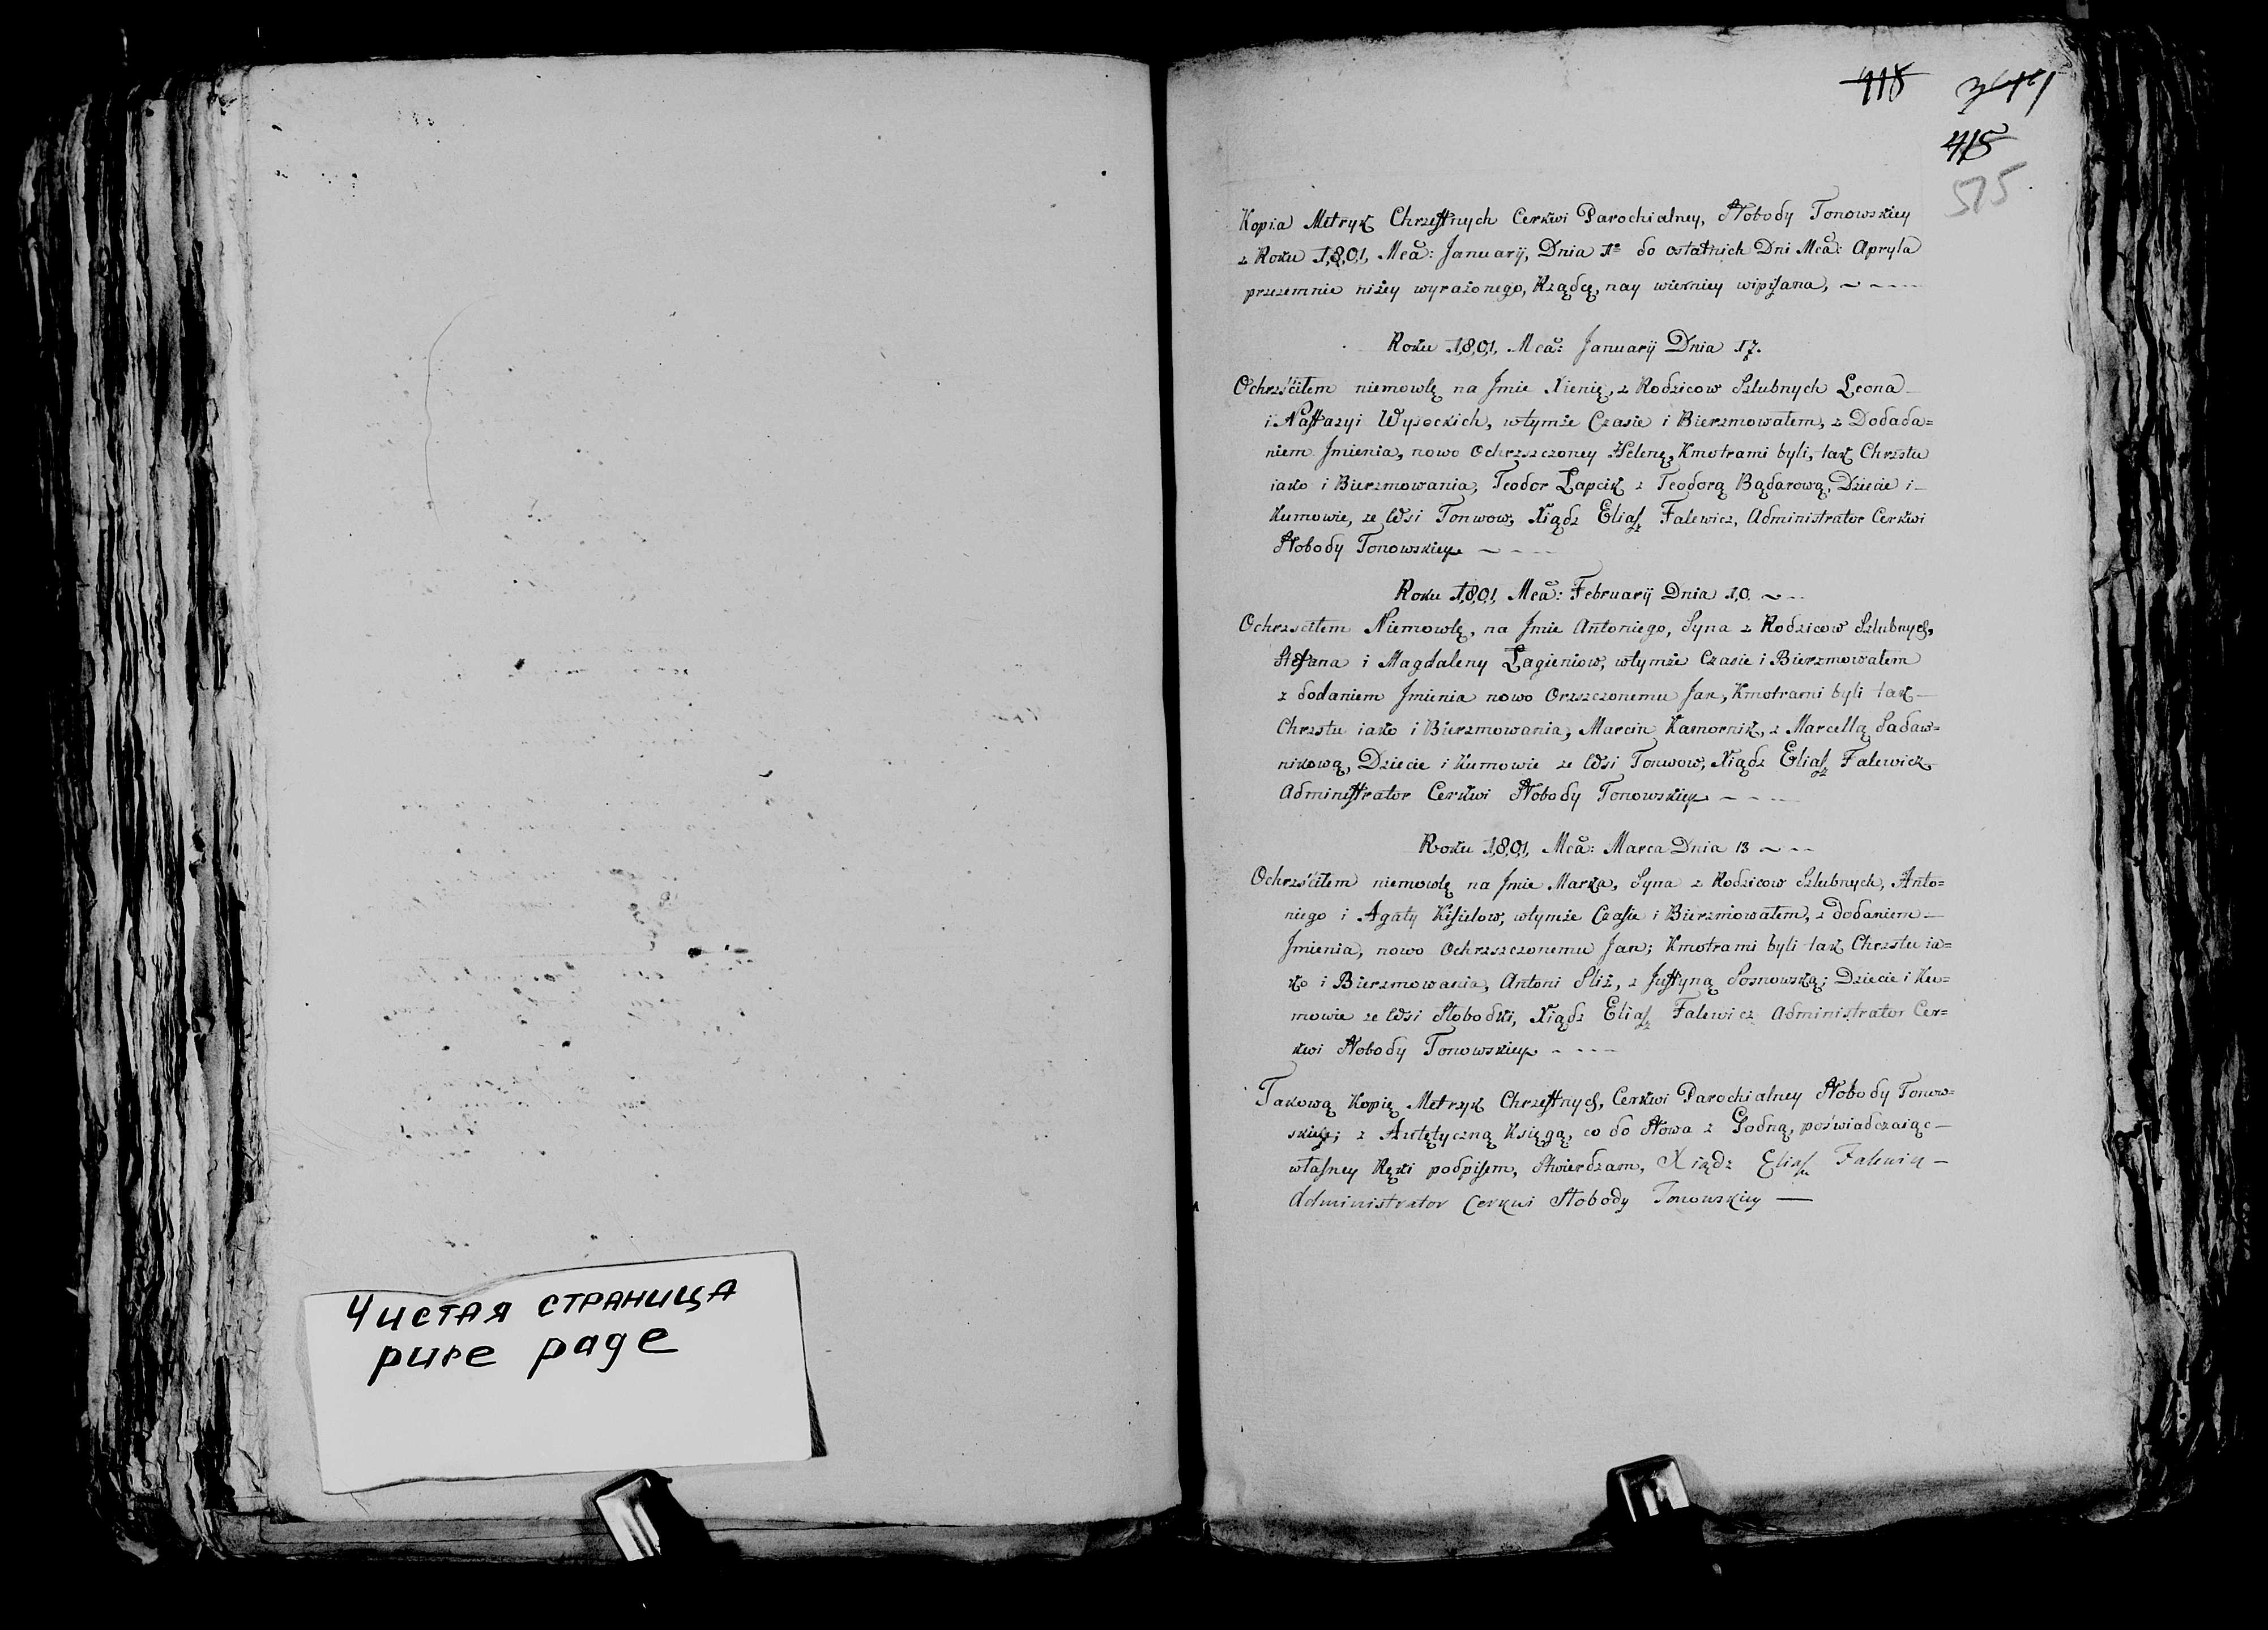 Чистая страница
pure page
418
415
575
Kopia Metryk Chrzestnych Cerkwi Parochialney, Słobody Tonowskiey
z Roku 1801, Mca: Januarij, Dnia 1º do ostatnich Dni Mca: Apryla
przezemnie niżey wyrażonego, Rządcę, nay wierniey wipisana,
Roku 1801, Mca: Januarij Dnia 17.
Ochrzściłem niemowlę na Jmie Xienię, z Rodzicow Szlubnych Leona
i Nastazyi Wysockich, wtymże Czasie i Bierzmowałem, z Dodada=
niem Jmienia, nowo Ochrzszczoney Helenę, Kmotrami byli, tak Chrzstu
iako i Bierzmowania, Teodor Łapcik z Teodorą Bądarową, Dziecie i
Kumowie, ze Wsi Tonwow, Xiądz Eliasz Falewicz, Administrator Cerkwi
Słobody Tonowskiey
Roku 1801, Mca: Februarij Dnia 10
Ochrzsciłem Niemowlę, na Jmie Antoniego, Syna z Rodzicow Szlubnych,
Stefana i Magdaleny Łagieniow, wtymże Czasie i Bierzmowałem
z dodaniem Jmienia nowo Orzszczonemu Jan, Kmotrami byli tak
Chrzstu iako i Bierzmowania, Marcin Kamornik, z Marcellą Sadaw=
nikową, Dziecie i Kumowie ze Wsi Tonwow, Xiądz Eliasz Falewicz
Administrator Cerkwi Słobody Tonowskiey
Roku 1801, Mca: Marca Dnia 13
Ochrzściłem niemowlę na Jmie Marka, Syna z Rodzicow Szlubnych, Anto=
niego i Agaty Kisielow, wtymże Czasie i Bierzmowałem, z Dodaniem
Jmienia, nowo Ochrzszczonemu Jan; Kmotrami byli tak Chrzstu ia=
ko i Bierzmowania, Antoni Sliż, z Justyną Sosnowską; Dziecie i Ku=
mowie ze Wsi Słobodki, Xiądz Eliasz Falewicz Administrator Cer=
kwi Słobody Tonowskiey
Takową Kopię Metrzyk Chrzestnych, Cerkwi Parochialney Słobody Tonow=
skiey; z Autętyczną Księgą, co do Słowa z Godną, poświadczaiąc
własney Ręki podpisem, Stwierdzam, Xiądz Eliasz Falewicz
Administrator Cerkwi Słobody Tonowskiey